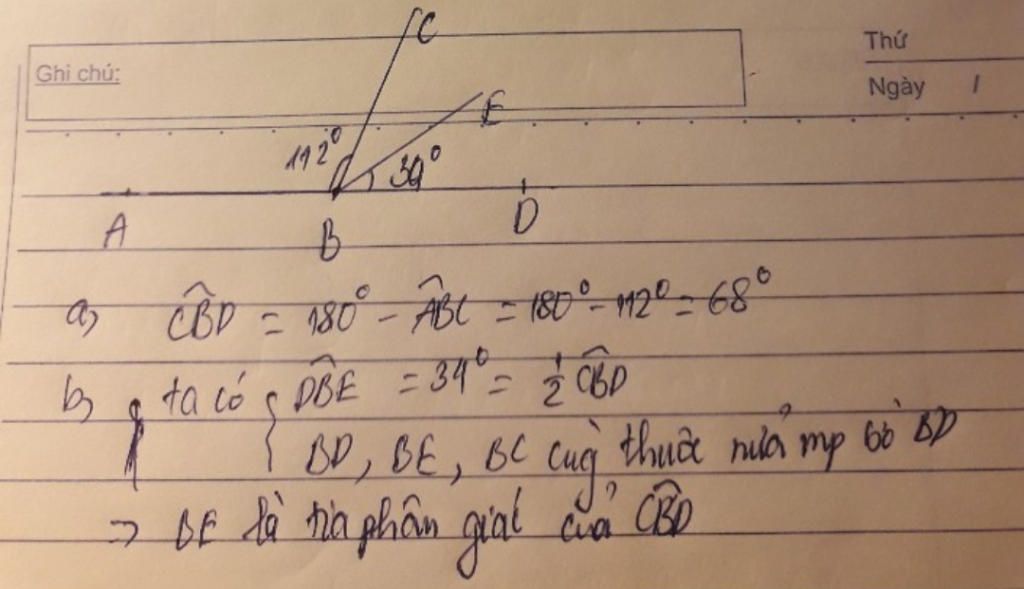 Ghi chú:
Thứ
Ngày /
C
E
112° 34°
A B D
a) CBD̂ = 180° - ABĈ = 180° - 112° = 68°
b) ta có { DBÊ = 34° = 1/2 CBD̂
BD, BE, BC cùg thuộc nửa mp bờ BD
=> BE là tia phân giác của CBD̂